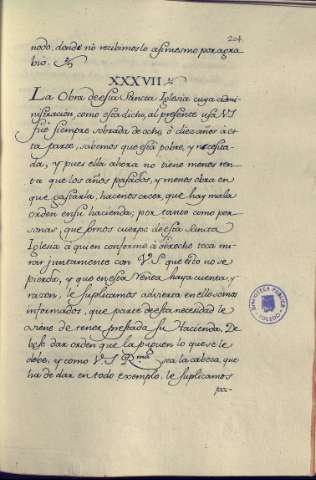 204
nodo, donde no recibimos lo asimesmo por agra
bio.
XXXVII
La Obra de esta Sancta Iglesia cuya admi
nistracion, como esta dicho, al presente usa V.S
fue siempre sobrada de ocho, ô diez años â es
ta parte, sabemos que esta pobre, y necesita
da, y pues ella ahora no tiene menos ren
ta que los años pasados, y menos obra en
que gastarla, hacenos creer, que hay mala
orden en su hacienda; por tanto como per
sonas, que somos cuerpo de esta Sancta
Iglesia â quien conforme â derecho toca mi
rar juntamente con V.S que esto no se
pierda, y que en esta Renta haya cuenta, y
razon, le suplicamos advierta en ello somos
informados, que parte de esta necesidad le
viene de tener prestada su Hacienda. De
bese dar orden que la paguen lo que se le
debe, y como V.S Rma sea la cabeza, que
ha de dar en todo exemplo, le suplicamos
por-
BIBLIOTECA PUBLICA
TOLEDO